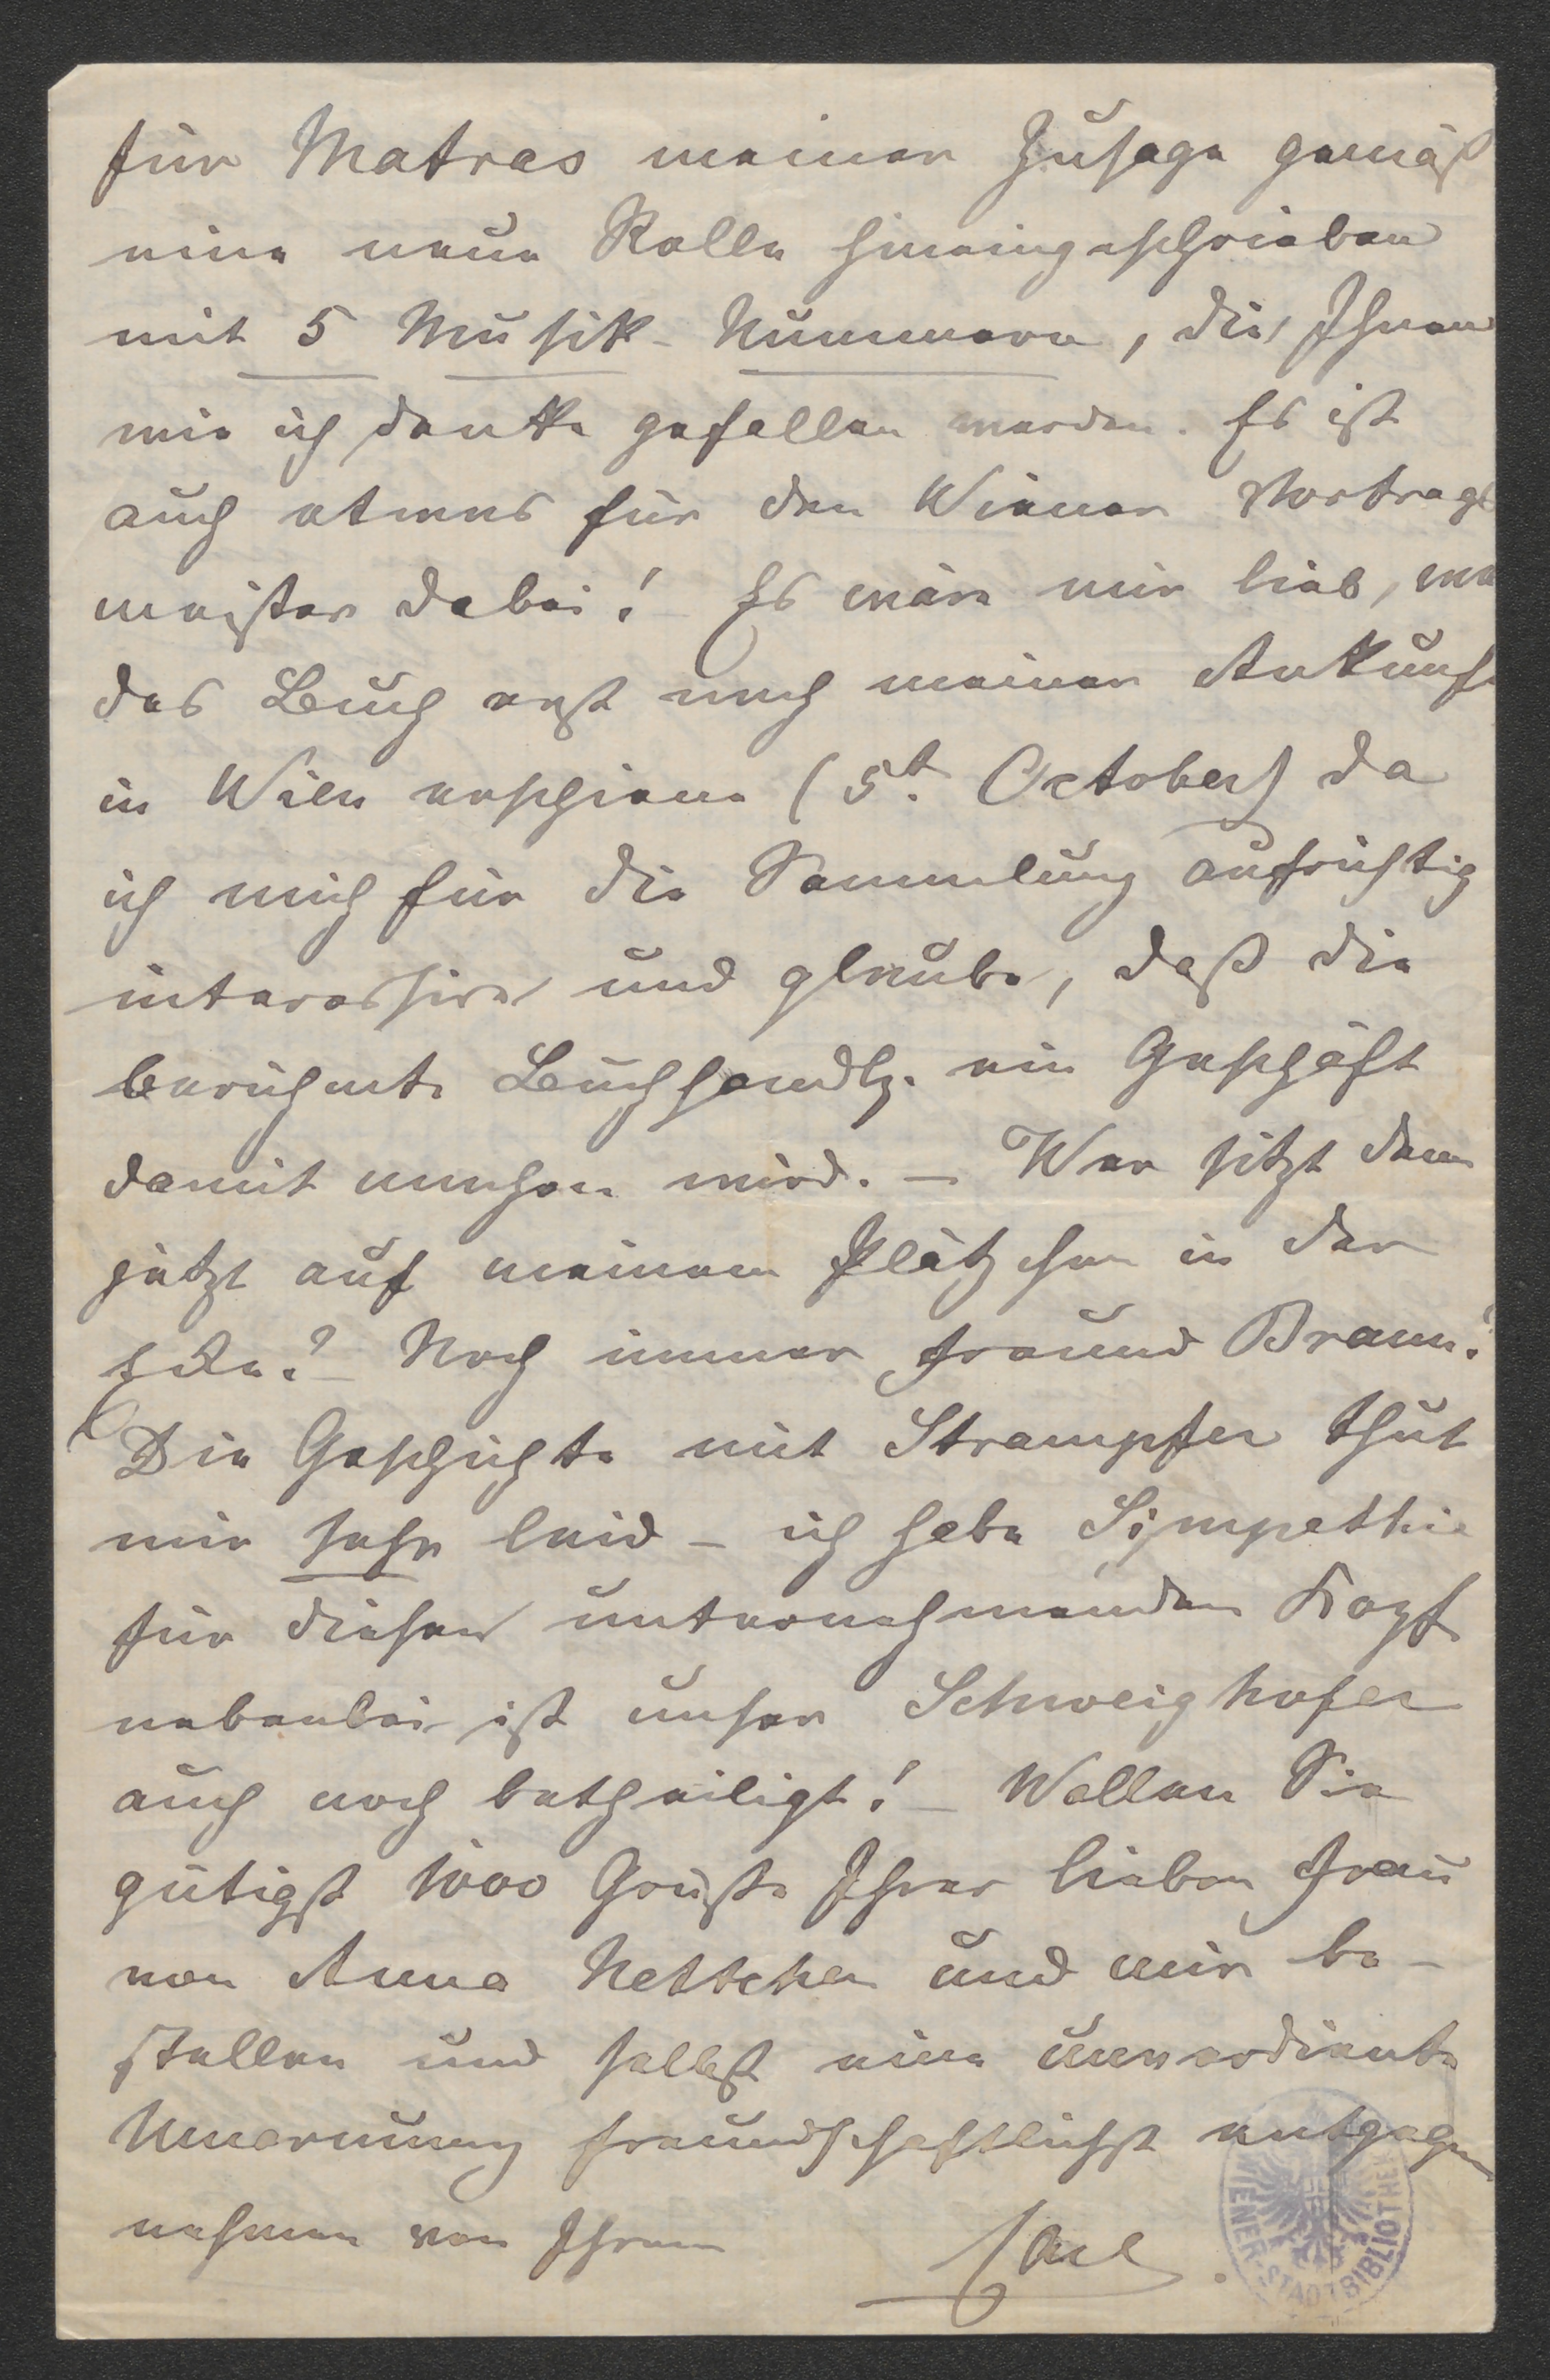 für Matras meiner Zusage gemäß
eine neue Rolle hineingeschrieben
mit 5 Musik-Nummern, die Ihnen
wie ich denke gefallen werden. Es ist
auch etwas für den Wiener Vortrags
meister dabei! – Es wäre mir lieb, we
das Buch erst nach meiner Ankunft
in Wien erschiene (5t. October) da
ich mich für die Sammlung aufrichtig
interessire und glaube, daß die
berühmte Buchhandlg. ein Geschäft
damit machen wird. – Wer sitzt denn
jetzt auf meinem Plätzchen in der
Ecke? – Noch immer Freund Braun?
Die Geschichte mit Strampfer thut
mir sehr leid – ich habe Sympathie
für diesen unternehmenden Kopf
nebenbei ist unser Schweighofer
auch noch betheiligt! – Wollen Sie
gütigst 1000 Grüße Ihrer lieben Frau
von Anna Nettchen und mir be-
stellen und selbst eine unverdiente
Umarmung freundschaftlichst entgegen
nehmen von Ihrem
WIENER STADTBIBLIOTHEK